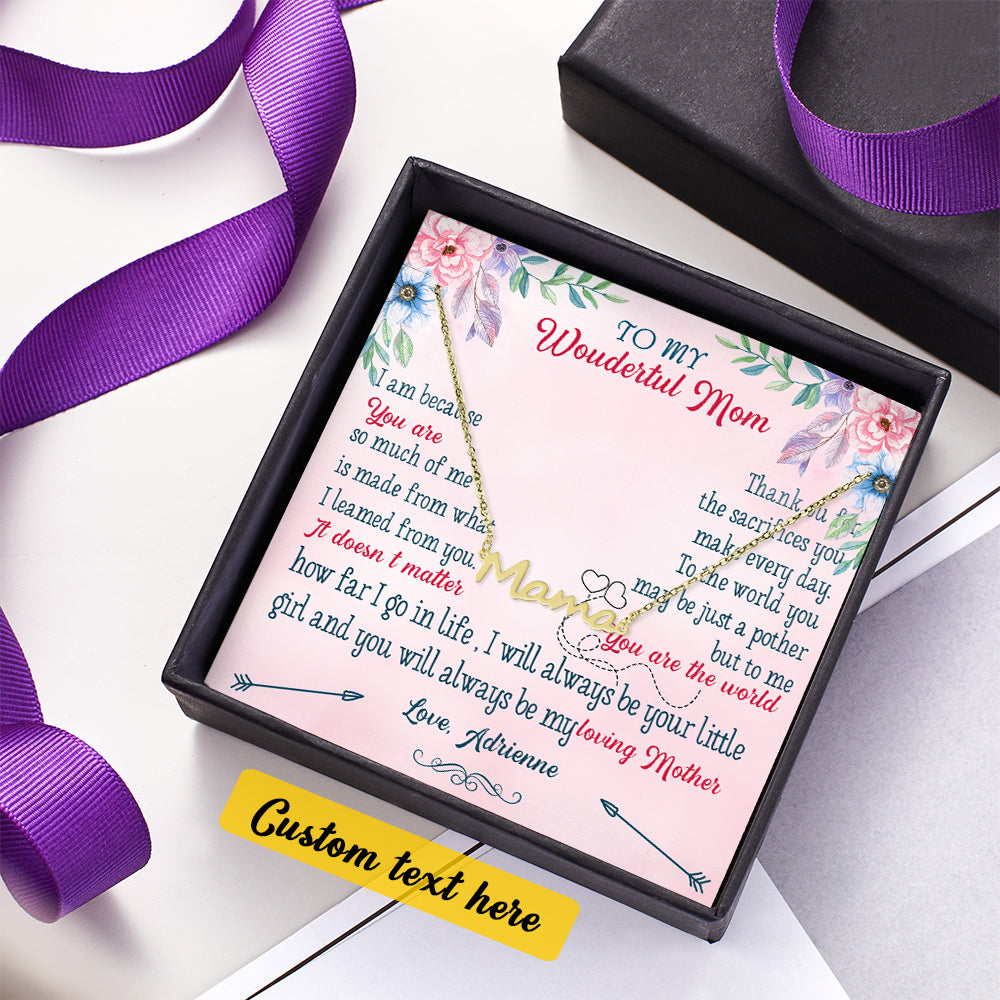 TO MY
Wouderful Mom
I am because
You are
so much of me
is made from what
I leamed from you.
It doesn t matter
how far I go in life, I will always be your little
girl and you will always be my loving Mother
Thank you for
the sacrifices you
make every day.
To the world you
may be just a pother
but to me
You are the world
Mama
Love, Adrienne
Custom text here